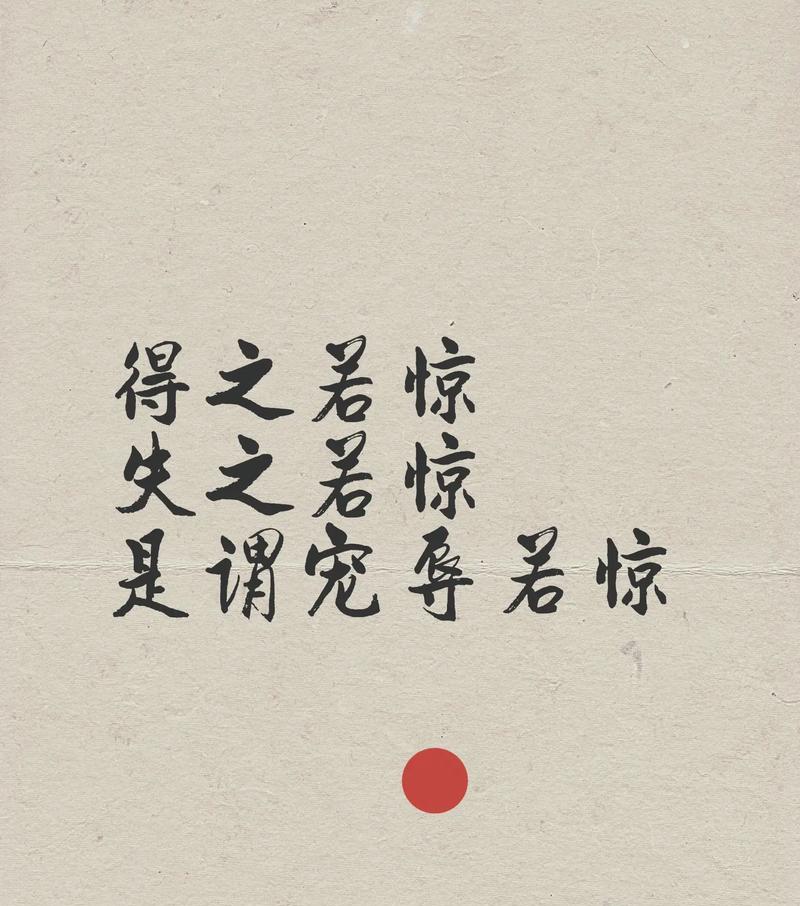 得之若惊
失之若惊
是谓宠辱若惊